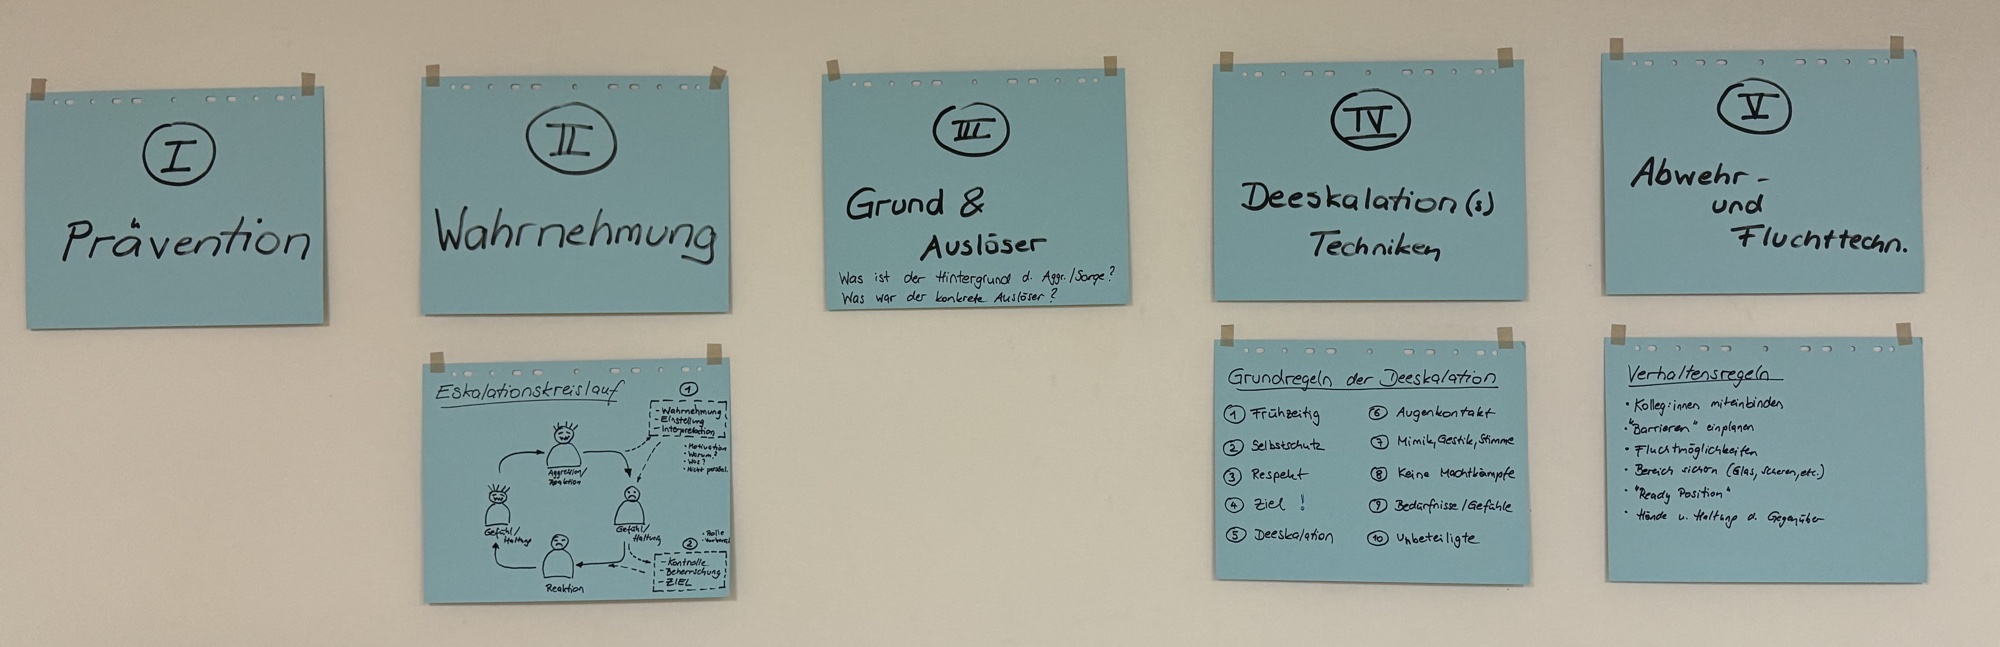 I
Prävention
II
Wahrnehmung
III
Grund &
Auslöser
Was ist der Hintergrund d. Aggr./Sorge?
Was war der konkrete Auslöser?
IV
Deeskalation(s)
Techniken
V
Abwehr-
und
Fluchttechn.
Eskalationskreislauf
1
- Wahrnehmung
- Einstellung
- Interpretation
• Motivation
• Warum?
• Was?
• Nicht persönl.
Aggression/
Reaktion
Gefühl/
Haltung
Gefühl/
Haltung
• Rolle
2
- Kontrolle
- Beherrschung
- ZIEL
Reaktion
Grundregeln der Deeskalation
1 Frühzeitig
2 Selbstschutz
3 Respekt
4 Ziel !
5 Deeskalation
6 Augenkontakt
7 Mimik, Gestik, Stimme
8 Keine Machtkämpfe
9 Bedürfnisse/Gefühle
10 Unbeteiligte
Verhaltensregeln
• Kolleg:innen miteinbinden
• "Barrieren" einplanen
• Fluchtmöglichkeiten
• Bereich sichern (Glas, Scheren, etc.)
• "Ready Position"
• Hände u. Haltung d. Gegenüber